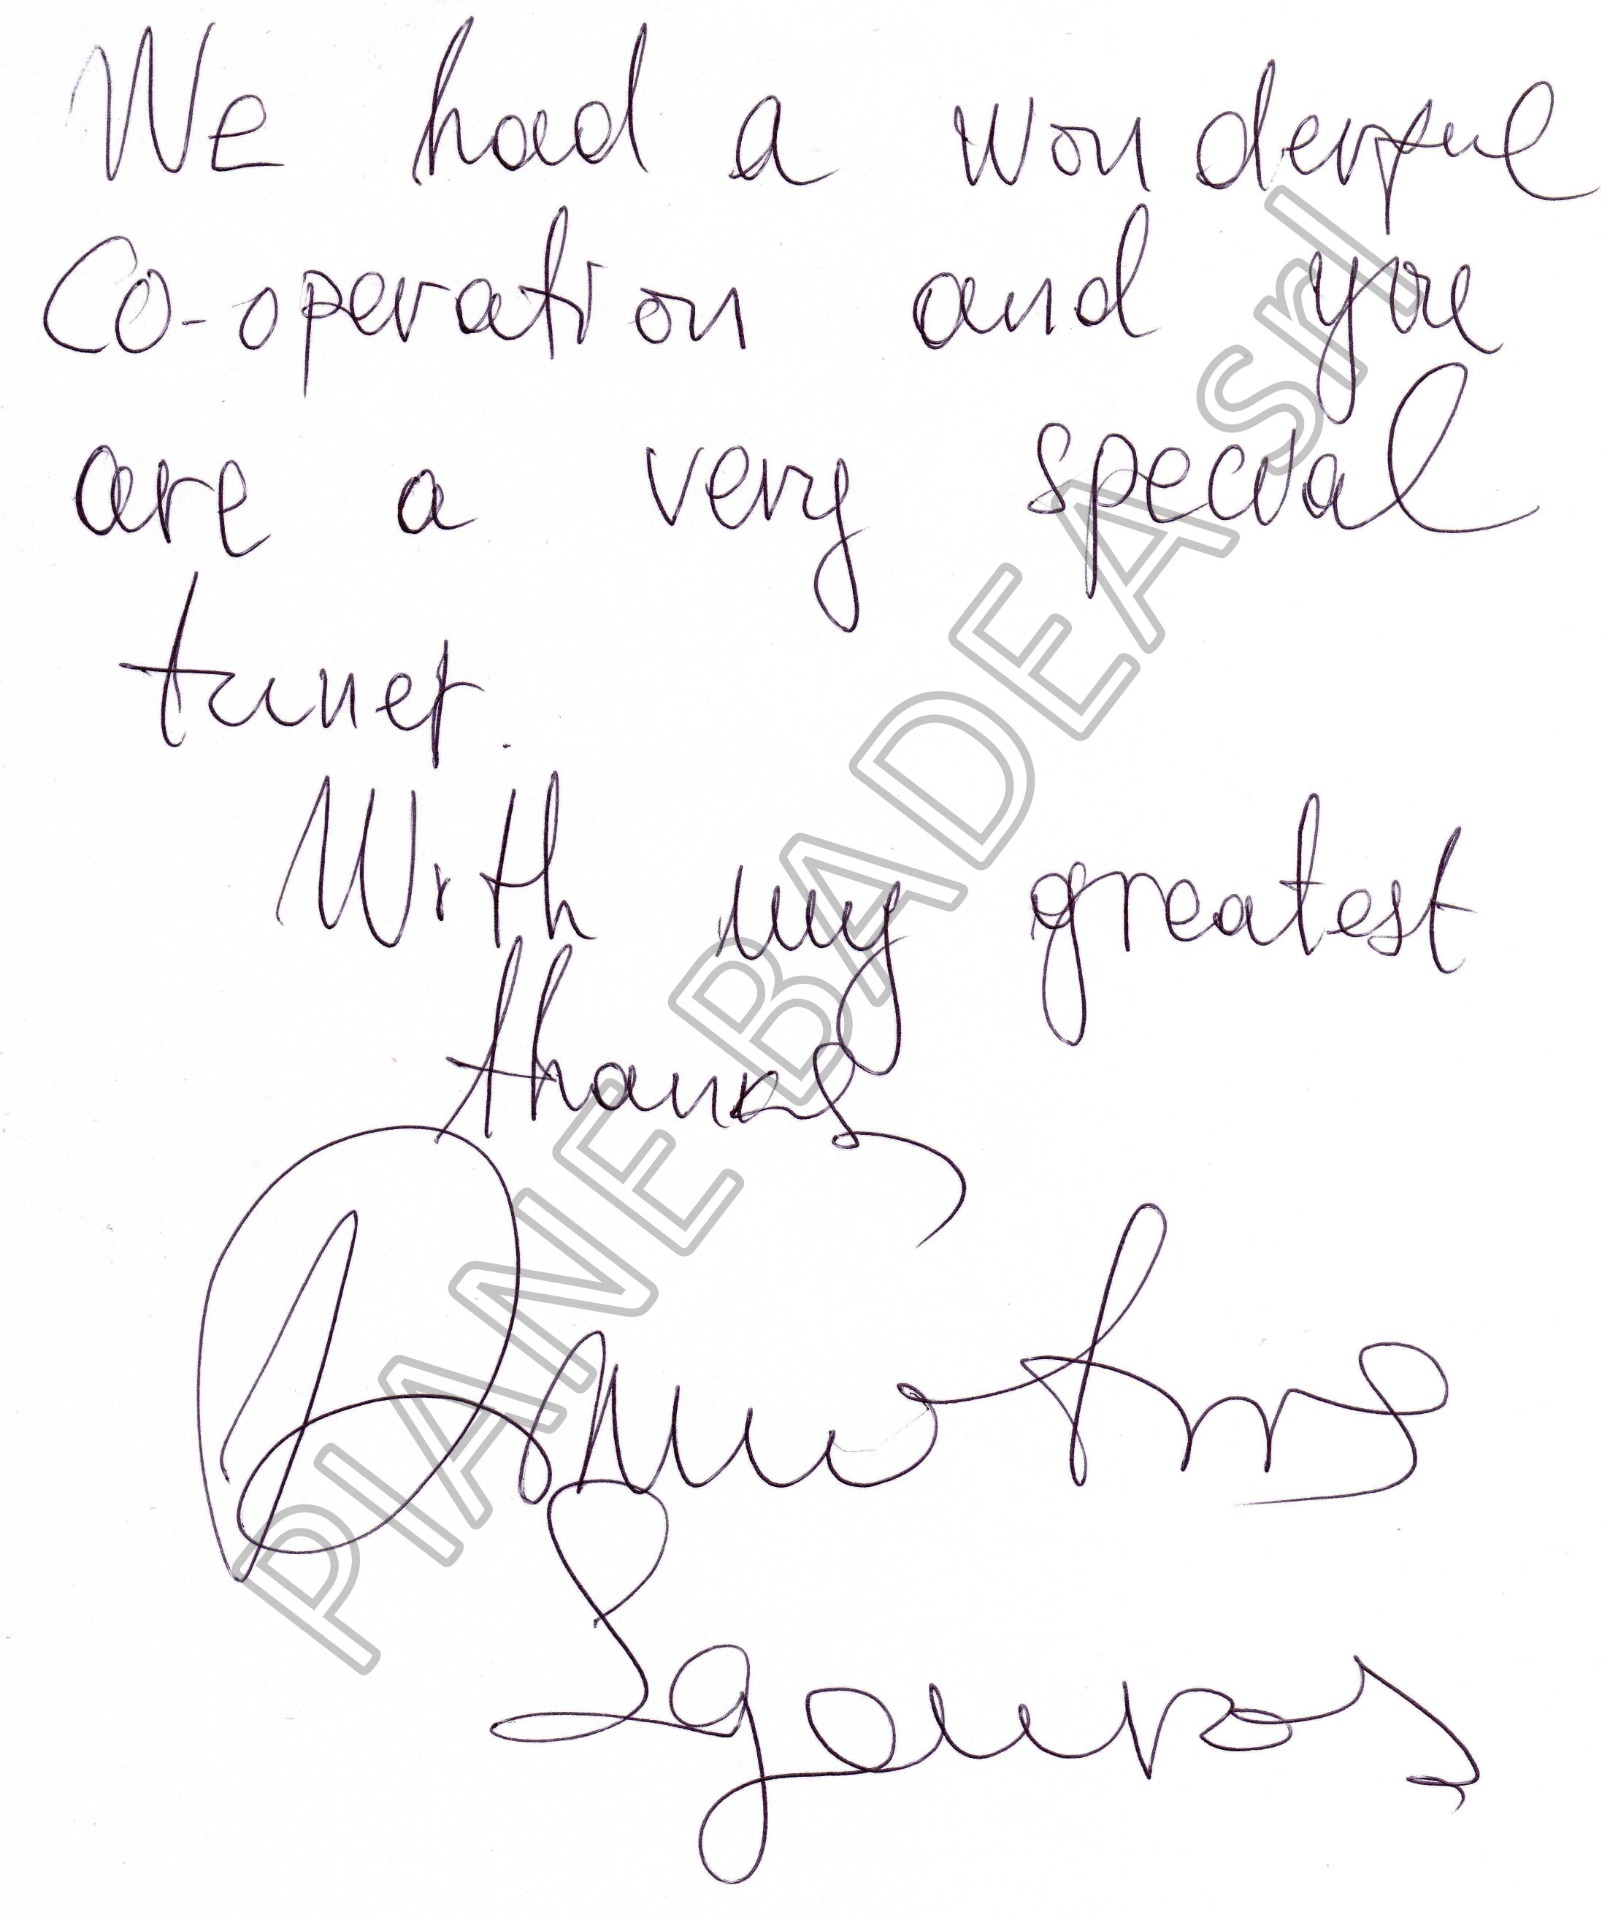 We had a wonderful
Co-operation and you
are a very special
tuner.
With my greatest
thanks
Dimitris
Sgouros
PIANE BADEA srl